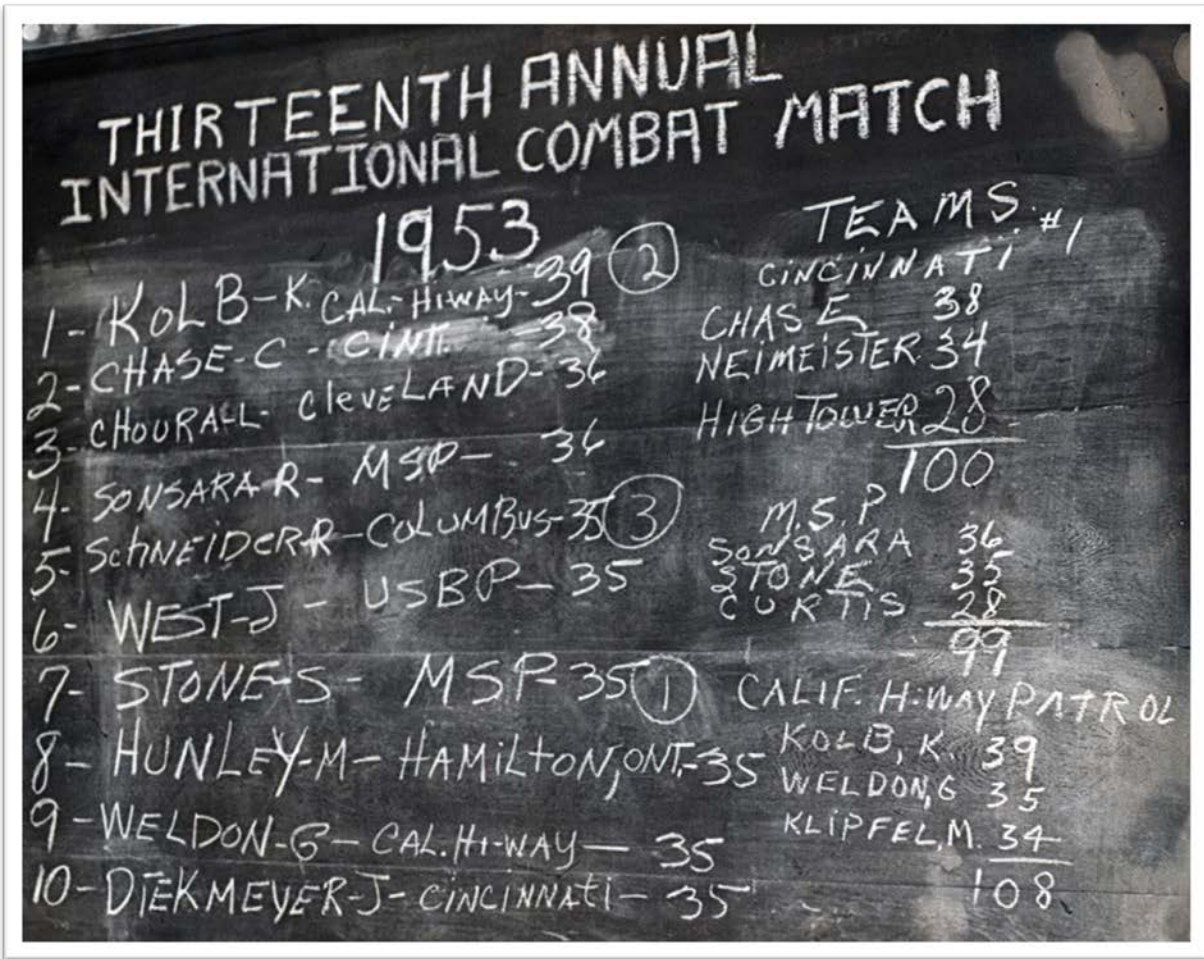 THIRTEENTH ANNUAL
INTERNATIONAL COMBAT MATCH
1953
1- KOLB-K. CAL.-HIWAY-39 2
2- CHASE-C - CINTI. -38
3- CHOURALL- CleveLAND-36
4- SONSARA-R- MSP- 36
5- SCHNEIDER-R-COLUMBUS-35 3
6- WEST-J - USBP-35
7- STONE-S- MSP-35 1
8- HUNLEY-M-HAMILTON,ONT.-35
9-WELDON-G-CAL.HI-WAY- 35
10-DIEKMEYER-J-CINCINNATI-35
TEAMS. #1
CINCINNATI
CHASE 38
NEIMEISTER 34
HIGHTOWER 28
100
M.S.P
SONSARA 36
STONE 35
CURTIS 28
99
CALIF. HIWAY PATROL
KOLB, K. 39
WELDON,G 35
KLIPFEL,M. 34
108